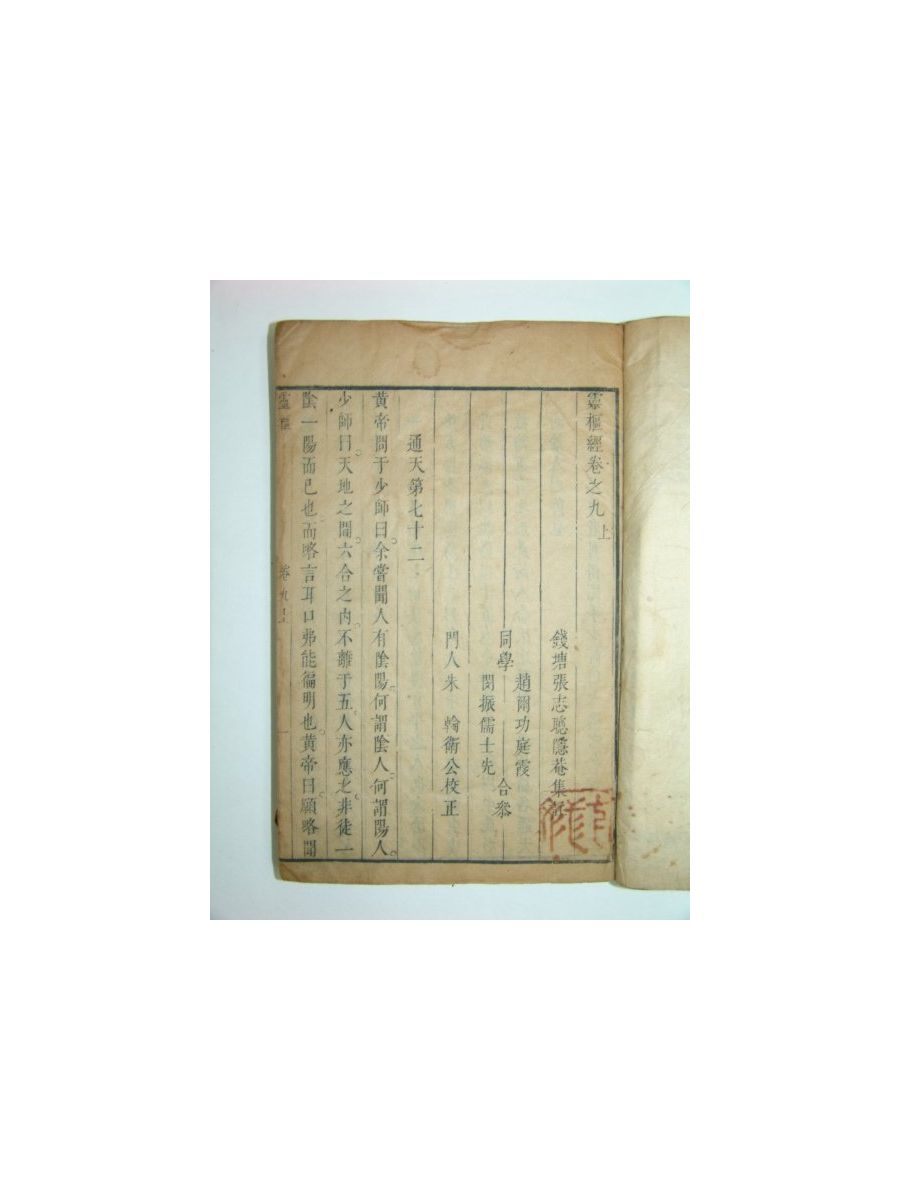 靈樞經卷之九上
錢塘張志聰隱菴集註
趙爾功庭霞
同學　合叅
閔振儒士先
門人朱　輪衛公校正
通天第七十二
黃帝問于少師曰余嘗聞人有陰陽何謂陰人何謂陽人
少師曰天地之間六合之內不離于五人亦應之非徒一
陰一陽而已也而略言耳口弗能徧明也黃帝曰願略聞
靈樞　卷九上